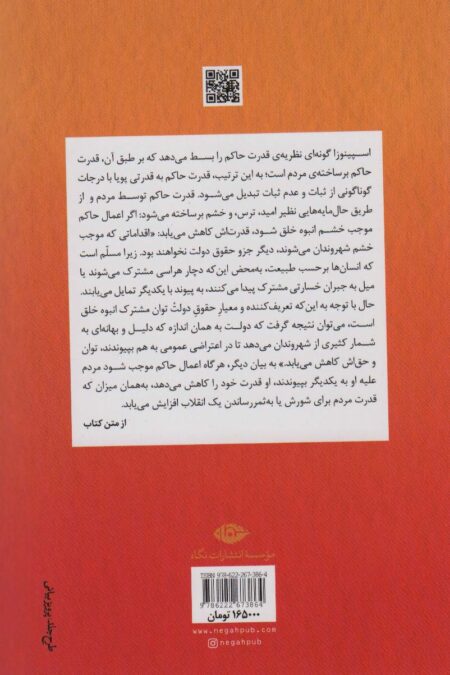 اسپینوزا گونه‌ای نظریه‌ی قدرت حاکم را بسط می‌دهد که بر طبق آن، قدرت
حاکم برساخته‌ی مردم است؛ به این ترتیب، قدرت حاکم به قدرتی پویا با درجات
گوناگونی از ثبات و عدم ثبات تبدیل می‌شود. قدرت حاکم توسط مردم و از
طریق حال‌مایه‌هایی نظیر امید، ترس، و خشم برساخته می‌شود: اگر اعمال حاکم
موجب خشم انبوه خلق شود، قدرت‌اش کاهش می‌یابد: «اقداماتی که موجب
خشم شهروندان می‌شوند، دیگر جزو حقوق دولت نخواهند بود. زیرا مسلّم است
که انسان‌ها برحسب طبیعت، به‌محض این‌که دچار هراسی مشترک می‌شوند یا
میل به جبران خسارتی مشترک پیدا می‌کنند، به پیوند با یکدیگر تمایل می‌یابند.
حال با توجه به این‌که تعریف‌کننده و معیارِ حقوق دولتْ توان مشترک انبوه خلق
است، می‌توان نتیجه گرفت که دولت به همان اندازه که دلیل و بهانه‌ای به
شمار کثیری از شهروندان می‌دهد تا در اعتراضی عمومی به هم بپیوندند، توان
و حق‌اش کاهش می‌یابد.» به بیان دیگر، هرگاه اعمال حاکم موجب شود مردم
علیه او به یکدیگر بپیوندند، او قدرت خود را کاهش می‌دهد، به‌همان میزان که
قدرت مردم برای شورش یا به‌ثمررساندن یک انقلاب افزایش می‌یابد.
از متن کتاب
مؤسسهٔ انتشارات نگاه
ISBN: 978-622-267-386-4
9 786222 673864
۱۶۵۰۰۰ تومان
www.negahpub.com
negahpub
طرح جلد: پرویز بیانی